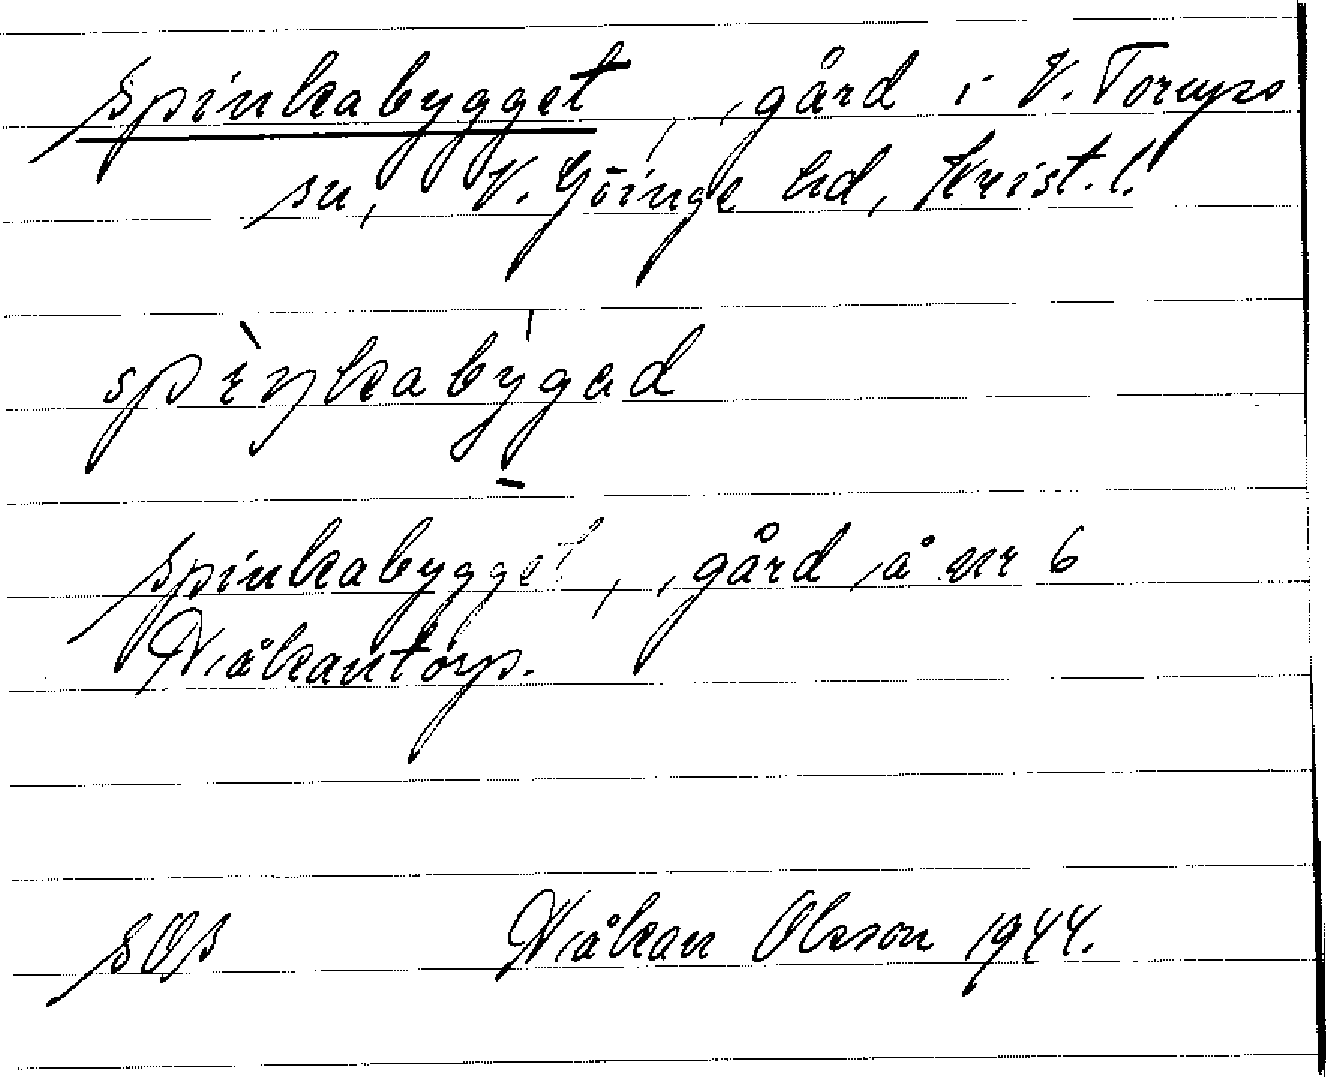 Spinkabygget, gård i V. Torups
sn, V. Göinge hd, Krist. l.
spìŋkabýgəd
Spinkabygget, gård å nr 6
Håkantorp.
SOS Håkan Olsson 1944.